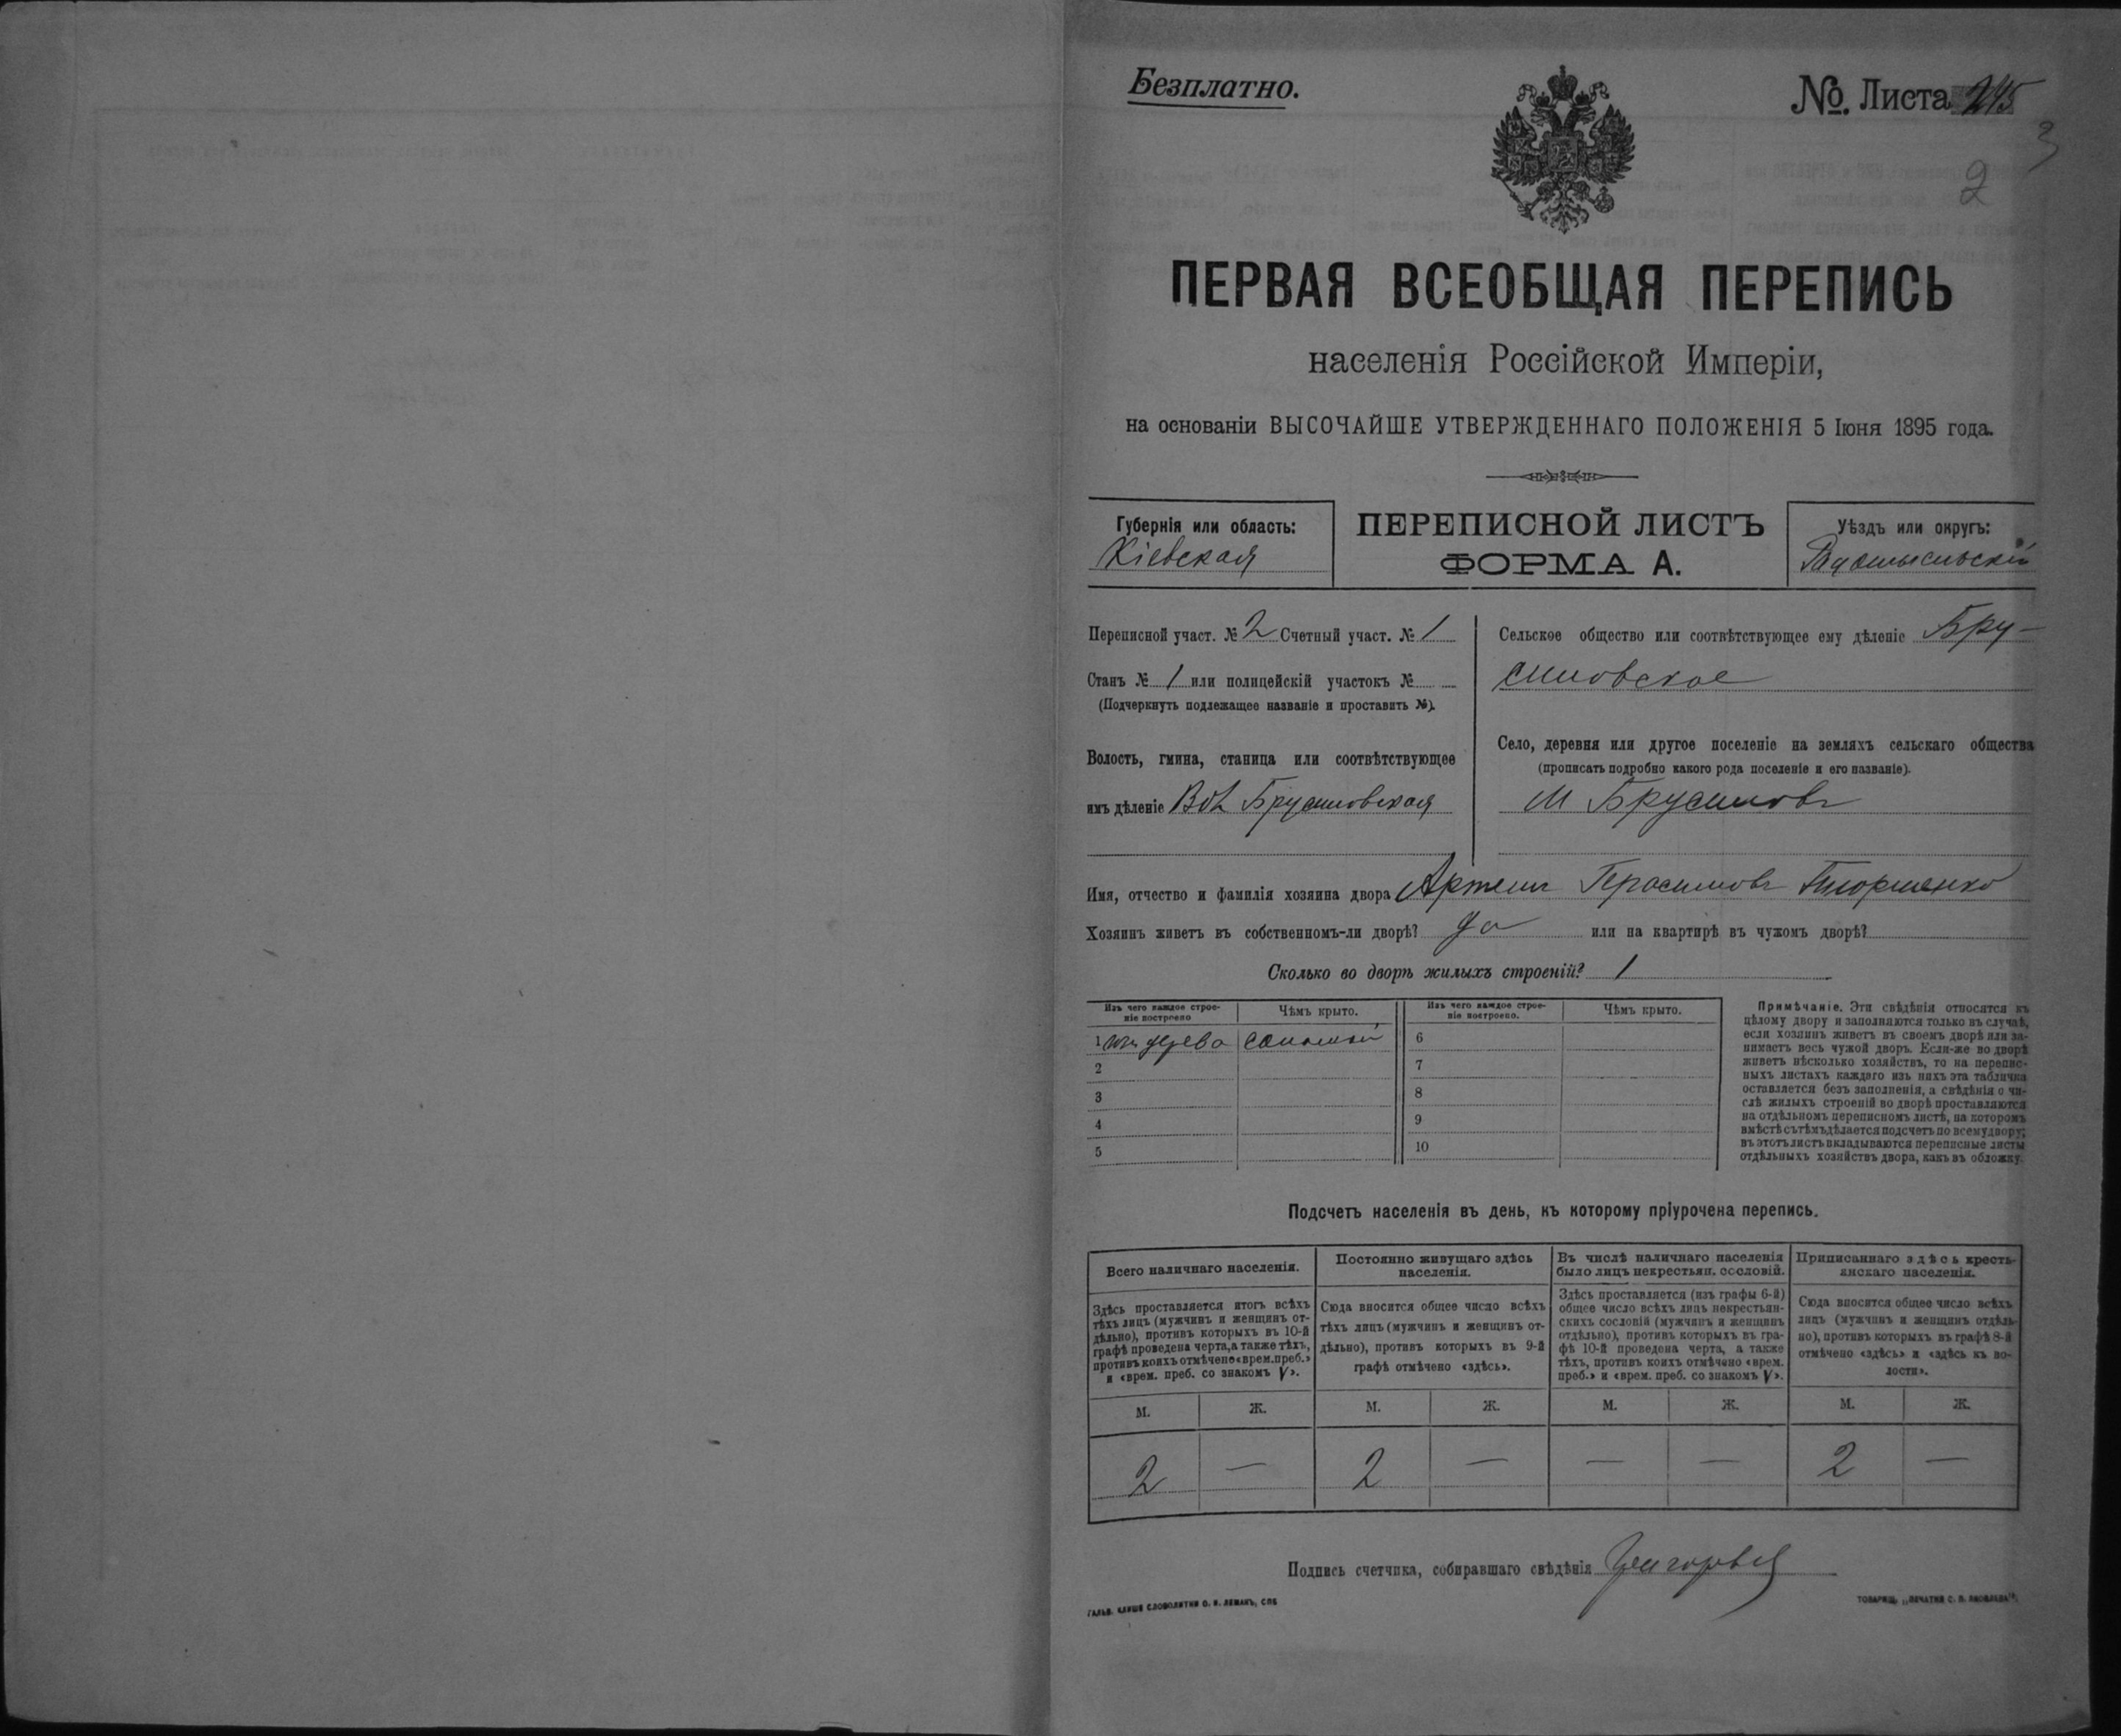 Безплатно.
№. Листа 245
3
2
ПЕРВАЯ ВСЕОБЩАЯ ПЕРЕПИСЬ
населенія Россійской Имперіи,
на основаніи ВЫСОЧАЙШЕ УТВЕРЖДЕННАГО ПОЛОЖЕНІЯ 5 Іюня 1895 года.
Губернія или область:
Кіевская
ПЕРЕПИСНОЙ ЛИСТЪ
ФОРМА А.
Уѣздъ или округъ:
Радомысльскій
Переписной участ. № 2 Счетный участ. № 1
Станъ № 1 или полицейскій участокъ №
(Подчеркнуть подлежащее названіе и проставить №).
Волость, гмина, станица или соотвѣтствующее
имъ дѣленіе Вол Брусиловская
Сельское общество или соотвѣтствующее ему дѣленіе Бру-
силовское
Село, деревня или другое поселеніе на земляхъ сельскаго общества
(прописать подробно какого рода поселеніе и его названіе).
М Брусиловъ
Имя, отчество и фамилія хозяина двора Артемъ Герасимовъ
Хозяинъ живетъ въ собственномъ-ли дворѣ? да или на квартирѣ въ чужомъ дворѣ?
Сколько во дворѣ жилыхъ строеній? 1
Изъ чего каждое строе-
ніе построено
Чѣмъ крыто.
1 изъ дерева соломой
2
3
4
5
Изъ чего каждое строе-
ніе построено.
Чѣмъ крыто.
6
7
8
9
10
Примѣчаніе. Эти свѣдѣнія относятся къ
цѣлому двору и заполняются только въ случаѣ,
если хозяинъ живетъ въ своемъ дворѣ или за-
нимаетъ весь чужой дворъ. Если-же во дворѣ
живетъ нѣсколько хозяйствъ, то на перепис-
ныхъ листахъ каждаго изъ нихъ эта табличка
оставляется безъ заполненія, а свѣдѣнія о чи-
слѣ жилыхъ строеній во дворѣ проставляются
на отдѣльномъ переписномъ листѣ, на которомъ
вмѣстѣ съ тѣмъ дѣлается подсчетъ по всему двору;
въ этотъ листъ вкладываются переписные листы
отдѣльныхъ хозяйствъ двора, какъ въ обложку.
Подсчетъ населенія въ день, къ которому пріурочена перепись.
Всего наличнаго населенія.
Здѣсь проставляется итогъ всѣхъ
тѣхъ лицъ (мужчинъ и женщинъ от-
дѣльно), противъ которыхъ въ 10-й
графѣ проведена черта, а также тѣхъ,
противъ коихъ отмѣчено «врем. преб.»
и «врем. преб. со знакомъ V».
Постоянно живущаго здѣсь
населенія.
Сюда вносится общее число всѣхъ
тѣхъ лицъ (мужчинъ и женщинъ от-
дѣльно), противъ которыхъ въ 9-й
графѣ отмѣчено «здѣсь».
Въ числѣ наличнаго населенія
было лицъ некрестьян. сословій.
Здѣсь проставляется (изъ графы 6-й)
общее число всѣхъ лицъ некрестьян-
скихъ сословій (мужчинъ и женщинъ
отдѣльно), противъ которыхъ въ гра-
фѣ 10-й проведена черта, а также
тѣхъ, противъ коихъ отмѣчено «врем.
преб.» и «врем. преб. со знакомъ V».
Приписаннаго здѣсь кресть-
янскаго населенія.
Сюда вносится общее число всѣхъ
лицъ (мужчинъ и женщинъ отдѣль-
но), противъ которыхъ въ графѣ 8-й
отмѣчено «здѣсь» и «здѣсь къ во-
лости».
М. Ж. М. Ж. М. Ж. М. Ж.
2 — 2 — — — 2 —
Подпись счетчика, собиравшаго свѣдѣнія
ГАЛЬВ. КЛИШЕ СЛОВОЛИТНИ О. И. ЛЕМАНЪ, СПБ
ТОВАРИЩ. „ПЕЧАТНЯ С. П. ЯКОВЛЕВА".